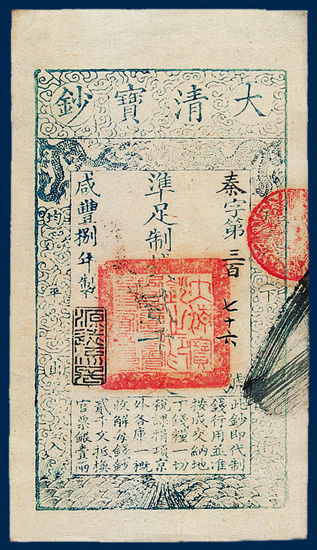 大清寶鈔
秦字第三百七十六號
準足制錢
咸豐捌年製
下
均平出入
大清寶鈔之印
源遠流長
此鈔即代制
錢行用並准
按成交納地
丁錢糧一切
稅課捐項京
外各庫一概
收解每錢鈔
貳千文抵換
官票銀壹兩